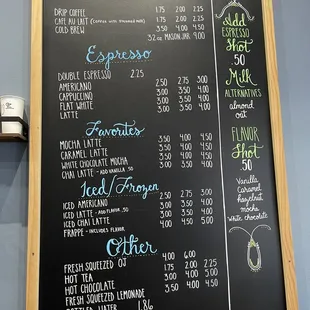 DRIP COFFEE 1.75 2.00 2.25
CAFE AU LAIT (COFFEE WITH STEAMED MILK) 1.75 2.00 2.25
COLD BREW 3.50 4.00 4.50
32 oz MASON JAR 9.00
Espresso
DOUBLE ESPRESSO 2.25
AMERICANO 2.50 2.75 3.00
CAPPUCCINO 3.00 3.50 4.00
FLAT WHITE 3.00 3.50 4.00
LATTE 3.00 3.50 4.00
Favorites
MOCHA LATTE 3.50 4.00 4.50
CARAMEL LATTE 3.50 4.00 4.50
WHITE CHOCOLATE MOCHA 3.50 4.00 4.50
CHAI LATTE - ADD VANILLA .50 3.00 3.50 4.00
Iced/Frozen
ICED AMERICANO 2.50 2.75 3.00
ICED LATTE - ADD FLAVOR .50 3.00 3.50 4.00
ICED CHAI LATTE 3.00 3.50 4.00
FRAPPE - INCLUDES FLAVOR 3.50 4.00 4.50
Other
FRESH SQUEEZED OJ 4.00 6.00
HOT TEA 1.75 2.00 2.25
HOT CHOCOLATE 3.00 4.00 5.00
FRESH SQUEEZED LEMONADE 3.50 4.00 4.50
BOTTLED WATER 1.86
add
ESPRESSO
Shot
.50
Milk
ALTERNATIVES
almond
oat
FLAVOR
Shot
.50
Vanilla
Caramel
hazelnut
mocha
White chocolate